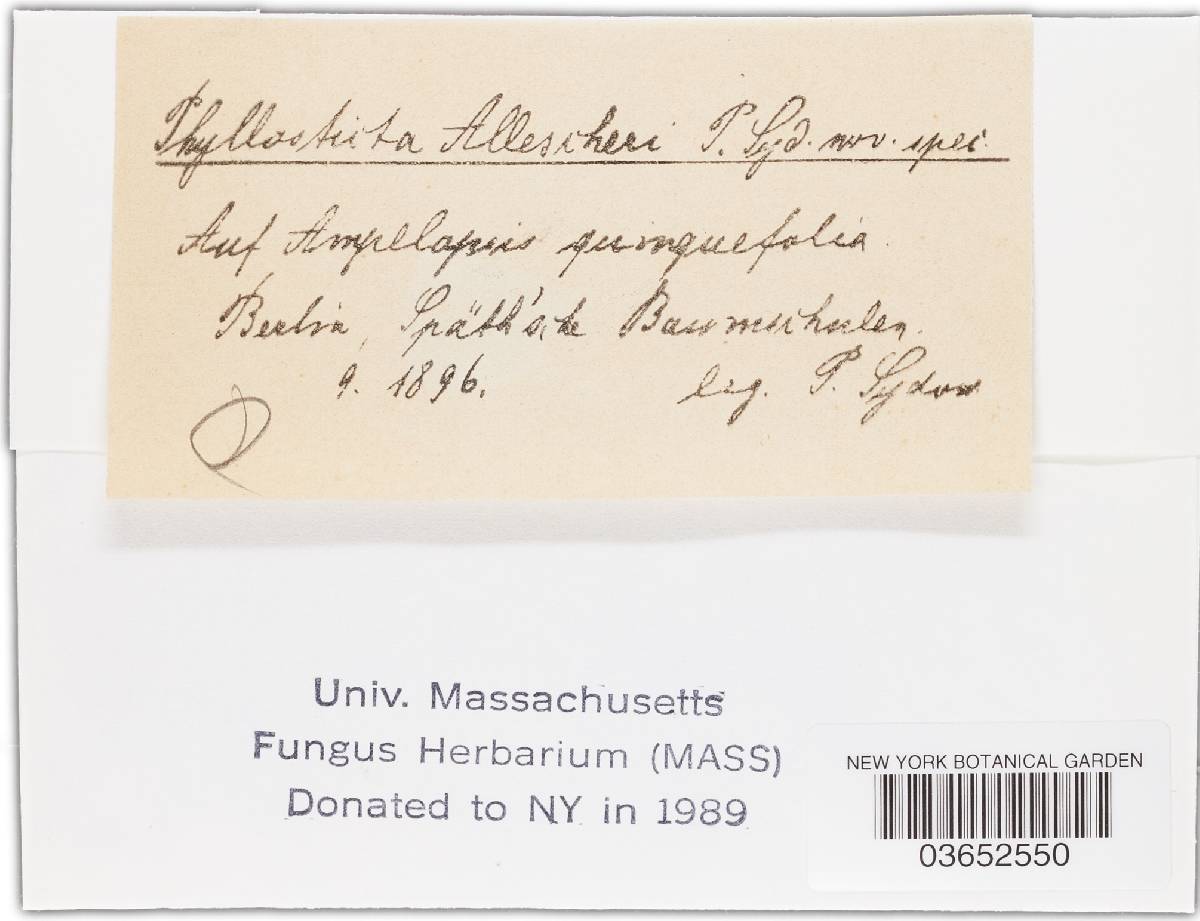 Phyllosticta Allescheri P. Syd. nov. spec.
Auf Ampelopsis quinquefolia.
Berlin, Späth'sche Baumschulen.
9. 1896. leg. P. Sydow
Univ. Massachusetts
Fungus Herbarium (MASS)
Donated to NY in 1989
NEW YORK BOTANICAL GARDEN
03652550